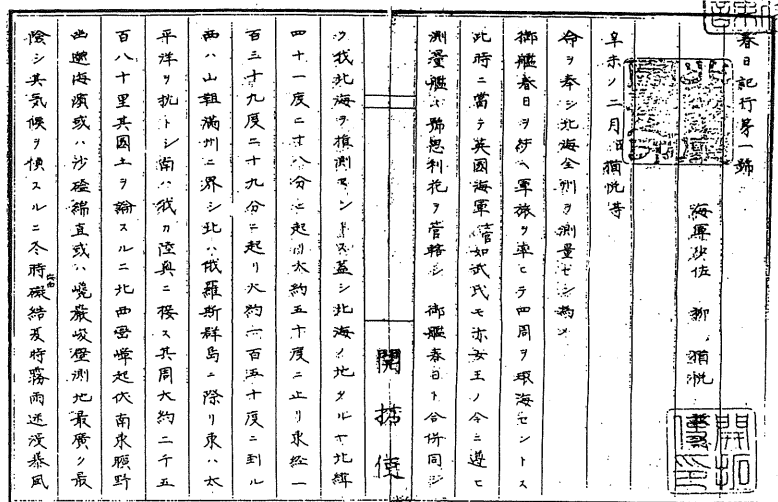 春日記行第一號
海軍少佐 柳 楢悦
皐未ノ二月日楢悦等
命ヲ奉シ北海全州ヲ測量センカ為メ
御艦春日ヲ艤ヘ軍旅ヲ率ヒテ四周ヲ環海セントス
此時ニ當テ英國海軍官如武氏モ亦女王ノ令ニ遵ヒ
測量艦ノ號思利花ヲ管轄シ 御艦春日ト合併同シ
ク我北海ヲ損測センドス蓋シ北海ノ地タルヤ北緯
四十一度二十八分ニ起リ大約五十度ニ止リ東経一
百三十九度二十九分ニ起リ大約一百五十度ニ到ル
西ハ山靼満州ニ界シ北ハ俄羅斯群島ニ際リ東ハ太
平洋ヲ抗トシ南ハ我カ陸奥ニ接ス其周大約二千五
百八十里其國土ヲ論スルニ北西雷嶂起伏南東曠野
幽邃海濱或ハ沙磧綿亘或ハ嶢巌峻壁測地最廣ク最
陰シ其気候ヲ偵スルニ冬時凝結夏時霧雨迷漫暴風
開拓使